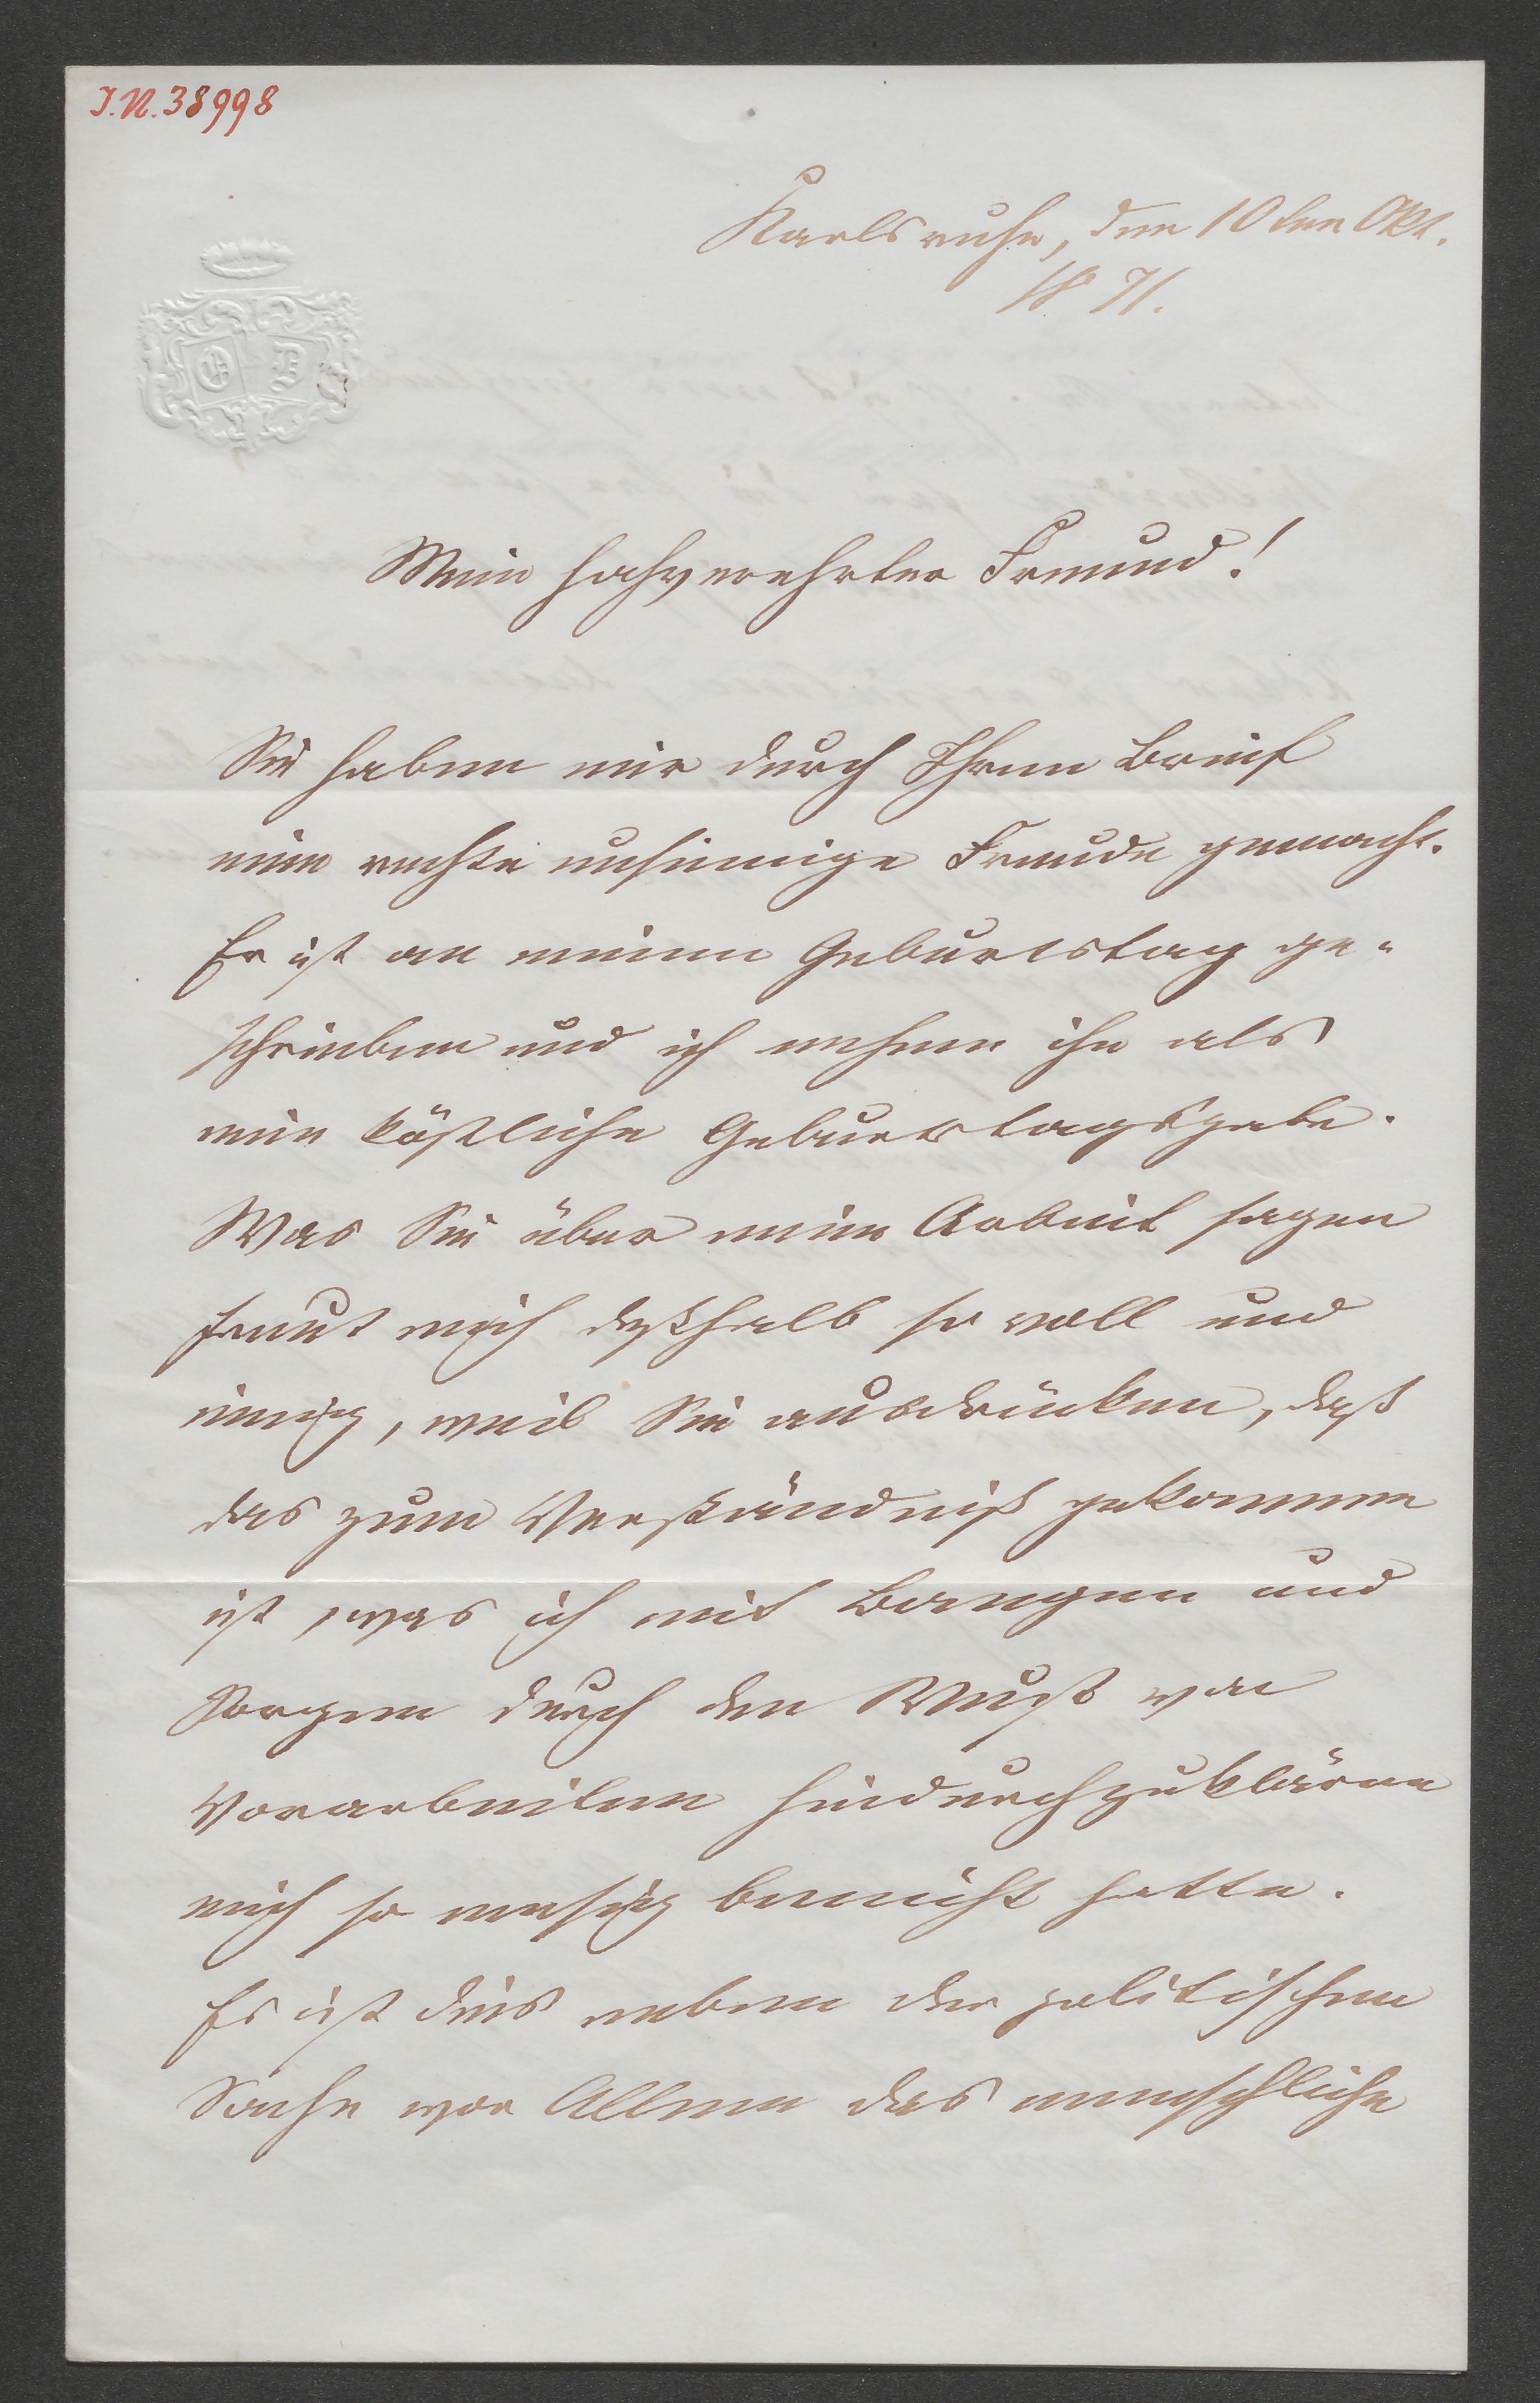 I.N. 38998
Karlsruhe, den 10ten Okt.
1871.
O D
Mein hochverehrter Freund!
Sie haben mir durch Ihren Brief
eine rechte unsinnige Freude gemacht.
Er ist an meinem Geburtstag ge-
schrieben und ich nehme ihn als
eine köstliche Geburtstagsgabe.
Was Sie über meine Arbeit sagen
freut mich deßhalb so voll und
innig, weil Sie ausdrücken, daß
das zum Verständniß gekommen
ist, was ich mit Bangen und
Sorgen durch den Wust von
Vorarbeiten hindurchzuklären
mich so emsig bemüht hatte.
Es ist dies neben der politischen
Sache vor Allem das menschliche